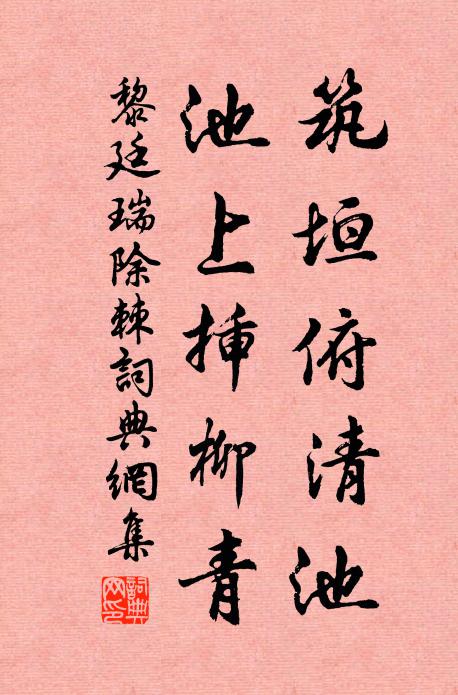 筑垣俯清池
池上挿柳青
黎廷瑞除棘詞典網集
詞典網印